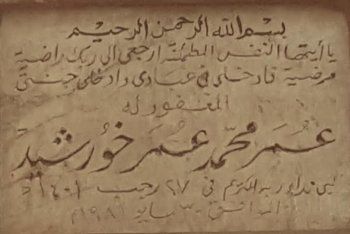 بسم الله الرحمن الرحيم
يا أيتها النفس المطمئنة ارجعي إلى ربك راضية
مرضية فادخلي في عبادي وادخلي جنتي
المغفور له
عمر محمد عمر خورشيد
لبى نداء ربه الكريم في ٢٧ رجب ١٤٠١
الموافق ٣٠ مايو ١٩٨١